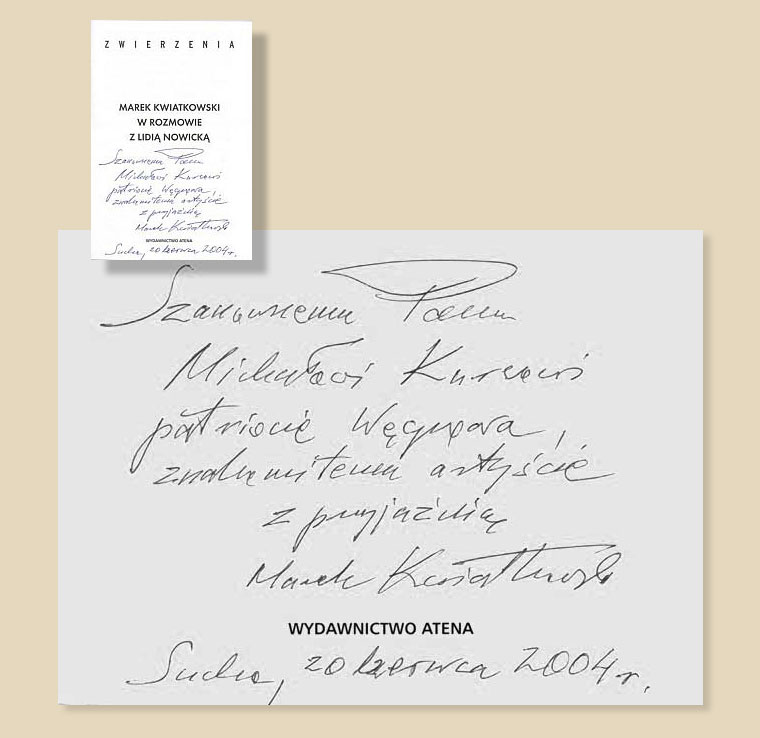 ZWIERZENIA
MAREK KWIATKOWSKI
W ROZMOWIE
Z LIDIĄ NOWICKĄ
Szanownemu Panu
Michałowi Kurcowi
patriocie Węgrowa,
znakomitemu artyście
z przyjaźnią
Marek Kwiatkowski
WYDAWNICTWO ATENA
Sucha, 20 czerwca 2004 r.
Szanownemu Panu
Michałowi
patriocie Węgrowa,
znakomitemu artyście
z przyjaźnią
Marek Kwiatkowski
WYDAWNICTWO ATENA
Sucha, 20 czerwca 2004 r.